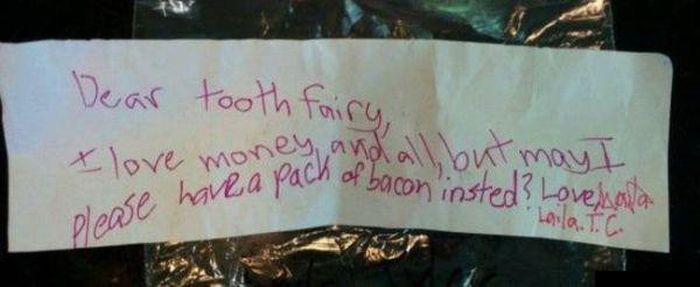 Dear tooth fairy,
I love money, and all, but may I
please have a pack of bacon insted? Love, Laila
Laila. T. C.